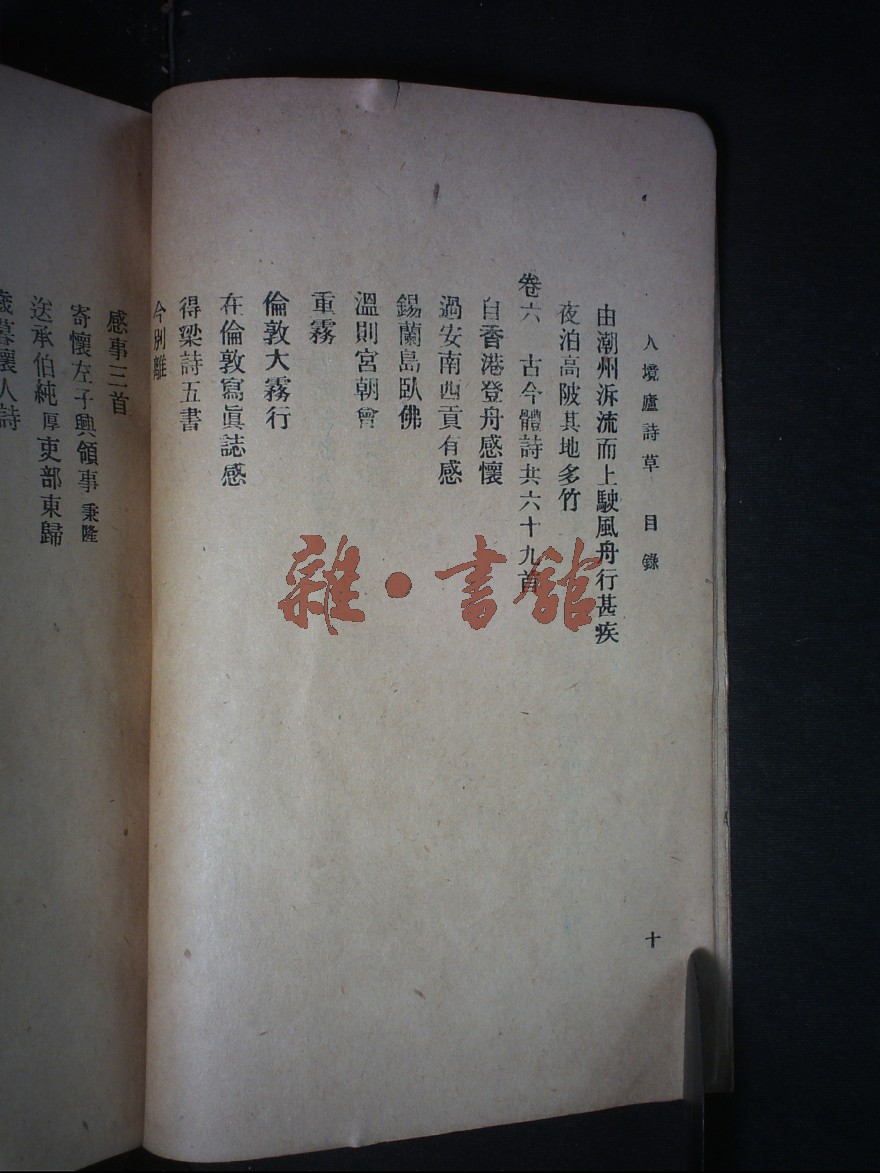 人境廬詩草 目錄 十
由潮州泝流而上駛風舟行甚疾
夜泊高陂其地多竹
卷六 古今體詩共六十九首
自香港登舟感懷
過安南西貢有感
錫蘭島臥佛
溫則宮朝會
重霧
倫敦大霧行
在倫敦寫眞誌感
得梁詩五書
今別離
感事三首
寄懷左子興領事 秉隆
送承伯純 厚 吏部東歸
歲暮懷人詩
雜·書館